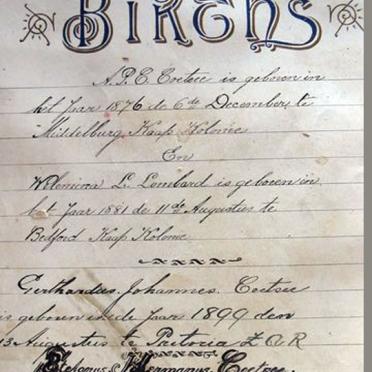 BIRTHS
A.P.C. Coetsee is geboren in
het Jaar 1876 de 6de December, te
Middelburg Kaap Kolonie
En
Wilemina L. Lombard is geboren in
het Jaar 1881 de 11de Augustus te
Bedford Kaap Kolonie
Gerthardus Johannes Coetsee
is geboren in de Jaar 1899 den
13 Augustus te Pretoria Z A R
Stephanus Hermanus Coetsee